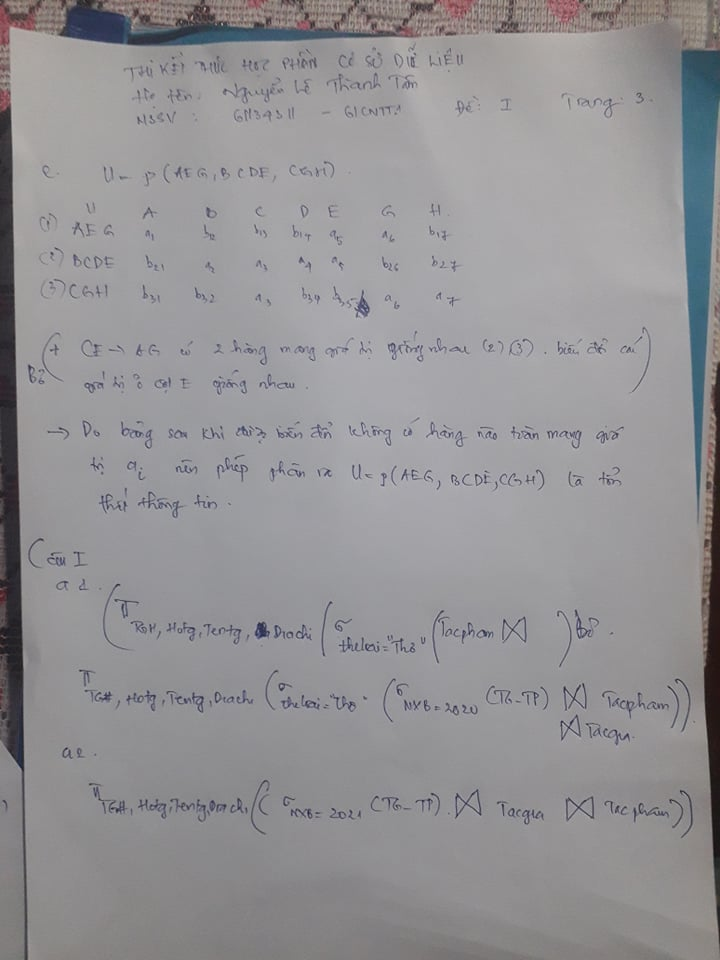 THI KẾT THÚC HỌC PHẦN CƠ SỞ DỮ LIỆU
Họ tên: Nguyễn Lê Thanh Tân
MSSV : 61134311 - 61CNTT1 Đề: I Trang: 3.
c. U = ρ(AEG, BCDE, CGH).
U A B C D E G H.
(1) AEG a₁ b₁₃ b₁₄ a₅ a₆ b₁₇
(2) BCDE b₂₁ a₂ a₃ a₄ a₅ b₂₆ b₂₇
(3) CGH b₃₁ b₃₂ a₃ b₃₄ b₃₅ a₆ a₇
Bỏ (+ CE → AG có 2 hàng mang giá trị giống nhau (2) (3). biến đổi cái
giá trị ở cột E giống nhau.)
→ Do bảng sau khi biến đổi không có hàng nào toàn mang giá
trị aᵢ nên phép phân rã U = ρ(AEG, BCDE, CGH) là tổn
thất thông tin.
Câu I
a1.
(π TG#, Hotg, Tentg, Diachi (σ theloai="Thơ" (Tacpham ⋈ ) Bỏ.
π TG#, Hotg, Tentg, Diachi (σ theloai="Thơ" (σ NXB=2020 (TG_TP) ⋈ Tacpham)).
⋈ Tacgia.
a2.
π TG#, Hotg, Tentg, Diachi ((σ NXB=2021 (TG_TP). ⋈ Tacgia ⋈ Tacpham))